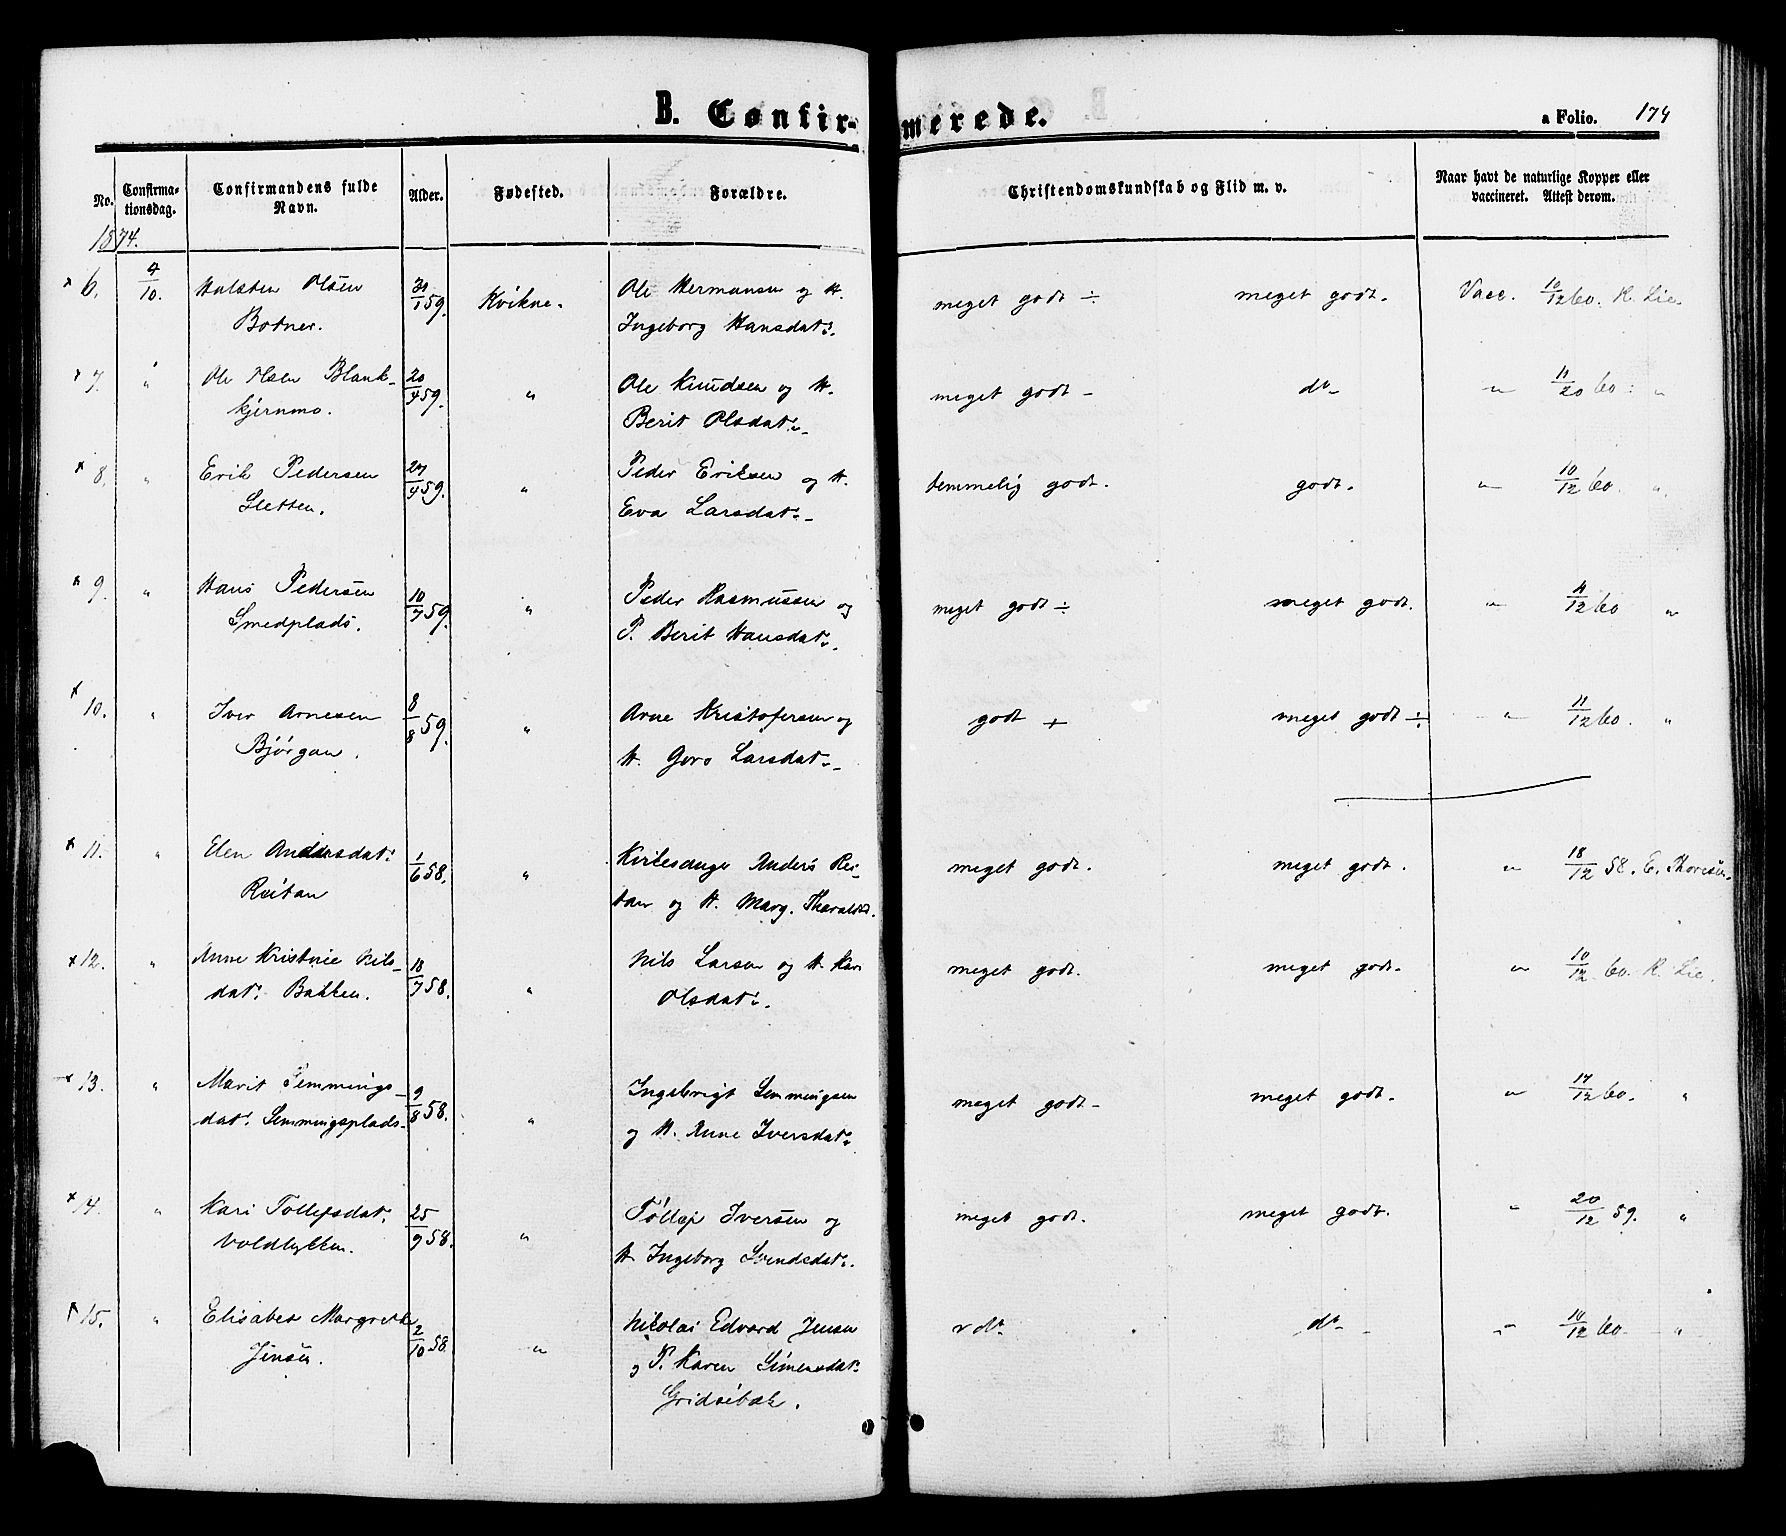 B. Confir-merede.
a Folio. 174
No.
Confirma-
tionsdag.
Confirmandens fulde
Navn.
Alder.
Fødested.
Forældre.
Christendomskundskab og Flid m. v.
Naar havt de naturlige Kopper eller
vaccineret. Attest derom.
1874.
× 6. 4/10. Halsten Olsen 31/1 59. Kvikne. Ole Hermansen og H. meget godt ÷ meget godt. Vacc. 10/12 60. K. Lie.
Botner. Ingeborg Hansdatr.
× 7. " Ole Olsen Blank- 20/4 59. " Ole Knudsen og H. meget godt - do - " 11/20 60. "
kjernmo. Berit Olsdatr.
× 8. " Erik Pedersen 24/4 59. " Peder Eriksen og H. temmelig godt. godt. " 10/12 60. "
Sletten. Eva Larsdatr.
× 9. " Hans Pedersen 10/7 59. " Peder Rasmussen og meget godt ÷ meget godt. " 11/12 60 "
Smedplads. P. Berit Hansdatr.
× 10. " Iver Arnesen 8/8 59. " Arne Kristofersen og godt + meget godt ÷ " 11/12 60. "
Bjørgan. H. Goro Larsdatr.
× 11. " Elen Andersdatr. 1/6 58. " Kirkesanger Anders Rei- meget godt. meget godt. " 18/12 58. E. Thoresen.
Reitan tan og H. Marg. Tharaldsd.
× 12. " Anne Kristine Nils- 18/7 58. " Nils Larsen og H. Kari meget godt. meget godt. " 10/12 60. K. Lie.
datr. Bakken. Olsdatr.
× 13. " Marit Semmings- 9/8 58. " Ingebrigt Semmingsen meget godt - meget godt. " 17/12 60. "
datr. Semmingsplads. og H. Anne Iversdatr.
× 14. " Kari Tollefsdatr. 25/9 58. " Tollef Iversen og meget godt. meget godt. " 20/12 59. "
Voldhytten. H. Ingeborg Svendsdatr.
15. " Elisabet Margrete 2/10 58. " Nikolai Edvard Jensen do do - " 10/12 60. "
Jensen. og P. Karen Simensdatr.
Gridsebæk.